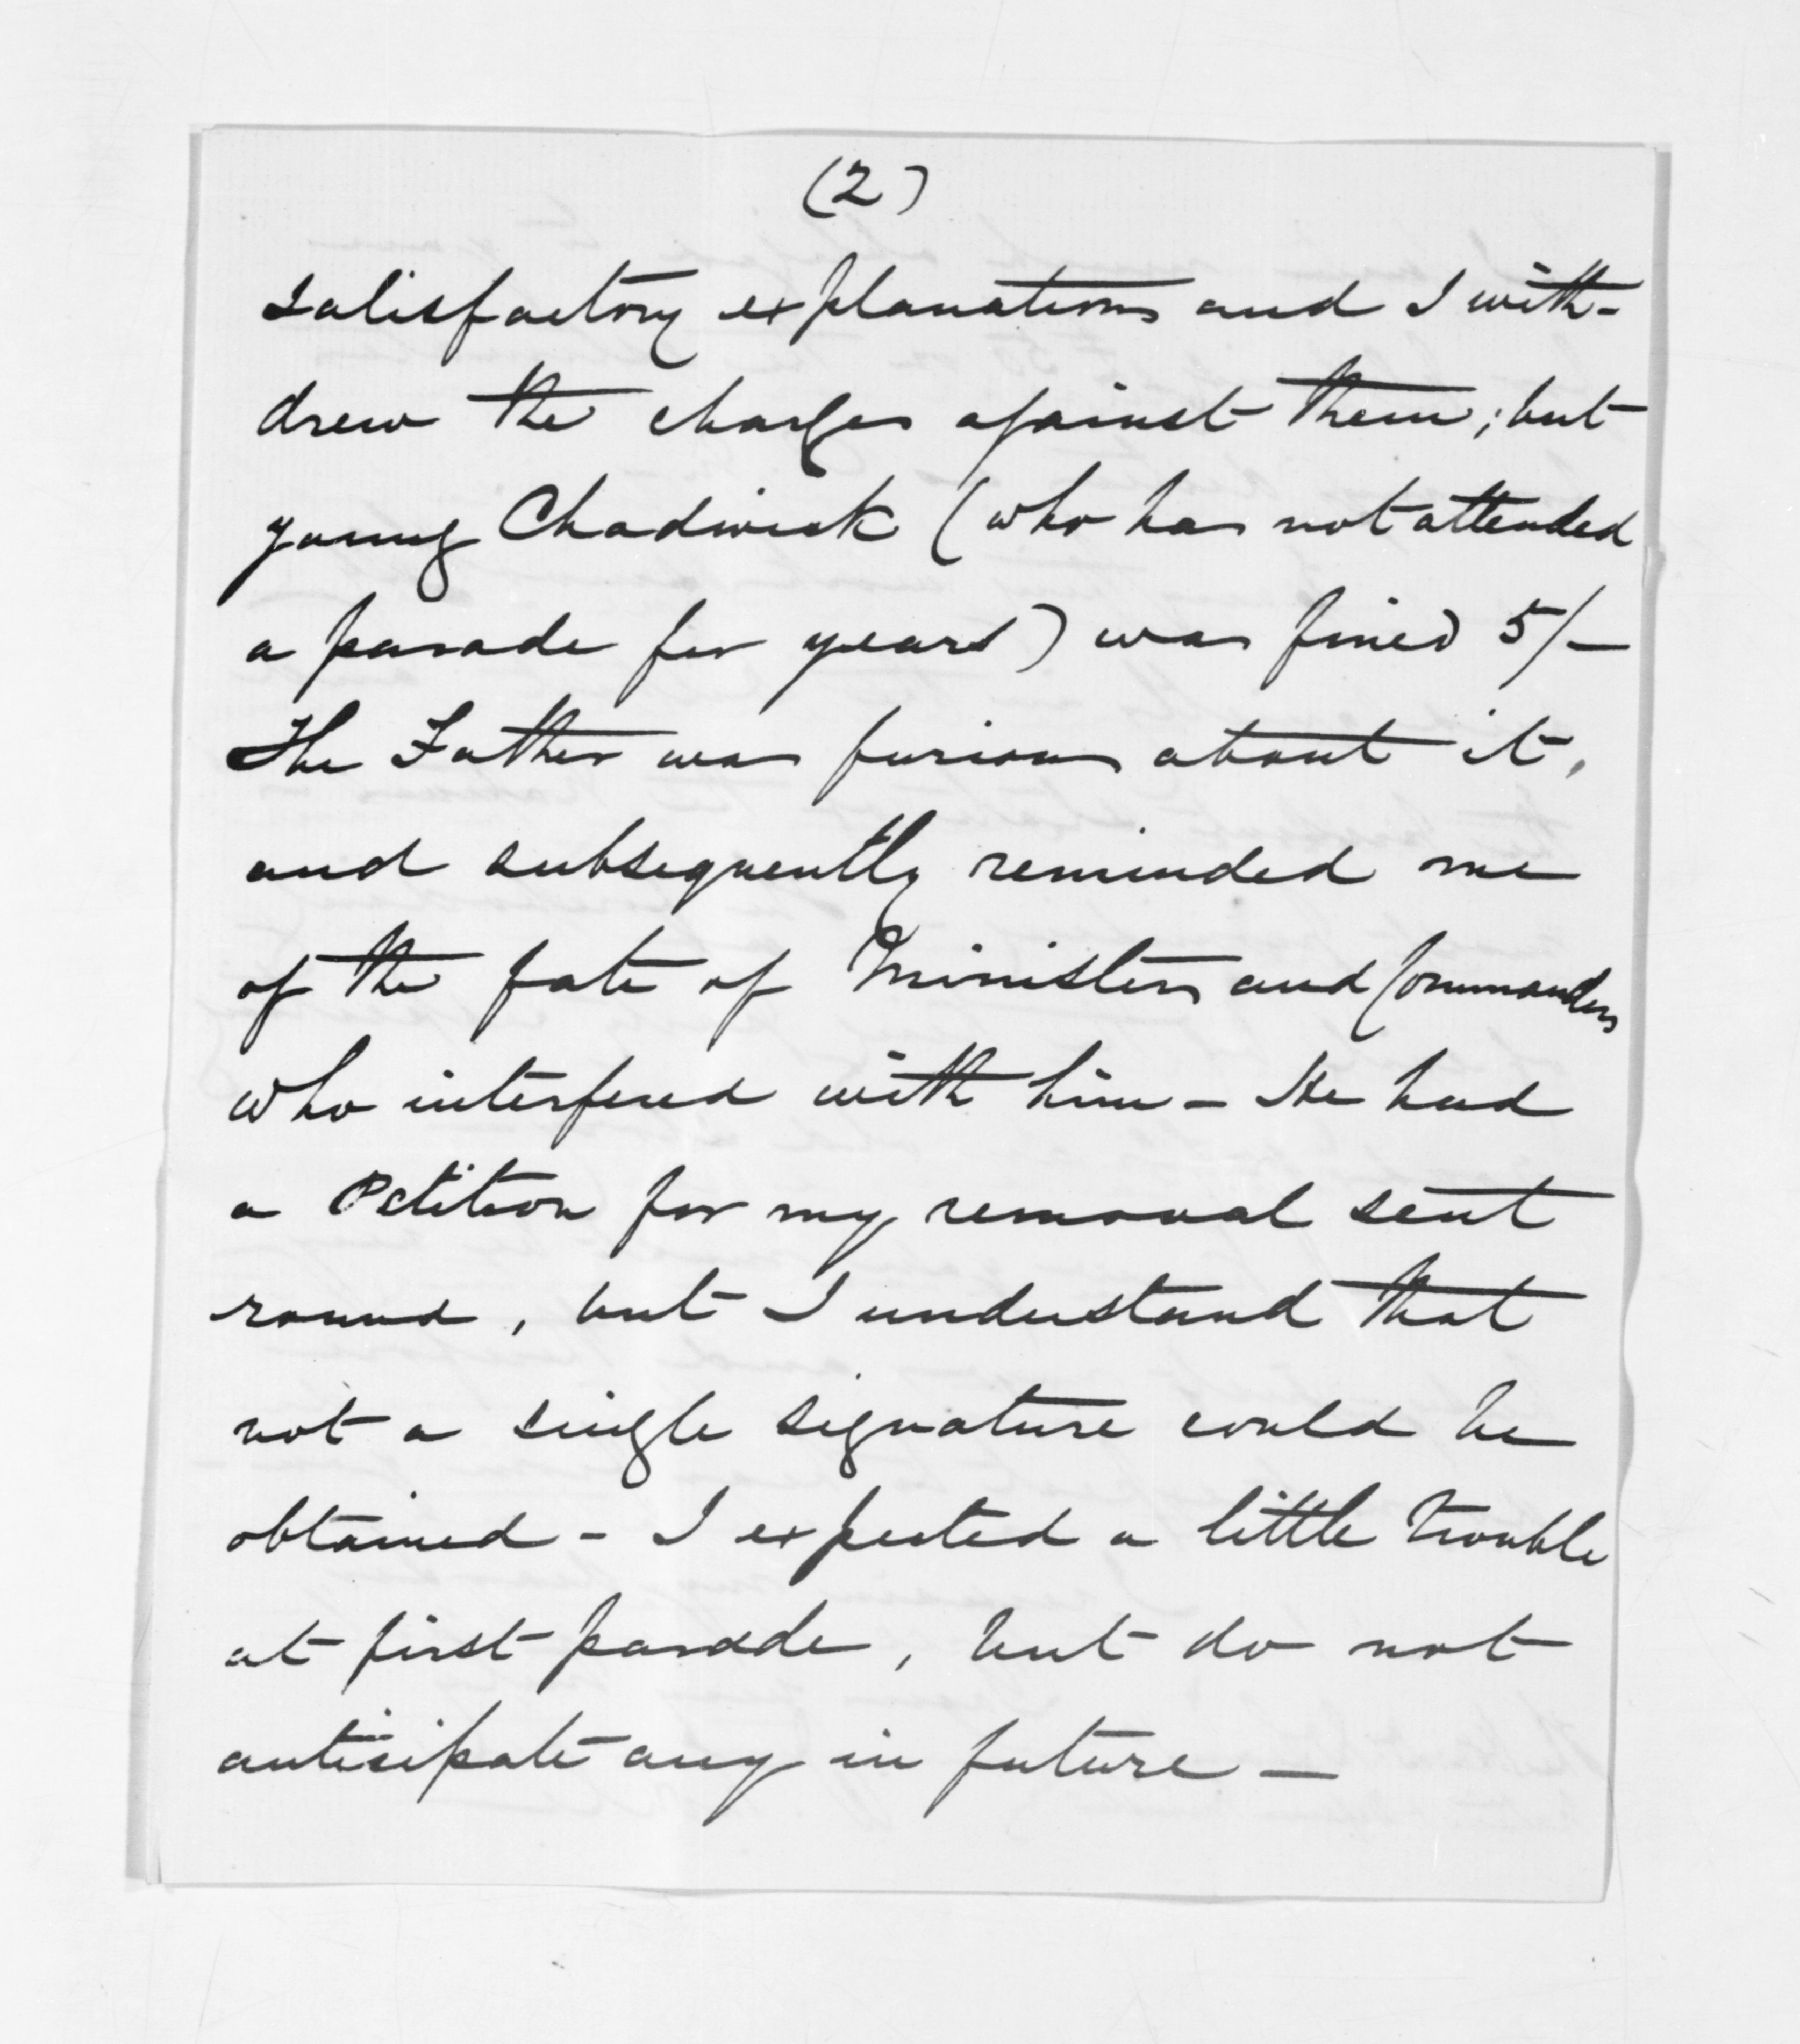 (2)
satisfactory explanations and I with-
drew the charges against them; but
young Chadwick (who has not attended
a parade for years) was fined 5/-
The Father was furious about it,
and subsequently reminded me
of the fate of Ministers and Commanders
who interfered with him - He had
a Petition for my removal sent
round, but I understand that
not a single signature could be
obtained - I expected a little trouble
at first parade, but do not
anticipate any in future -